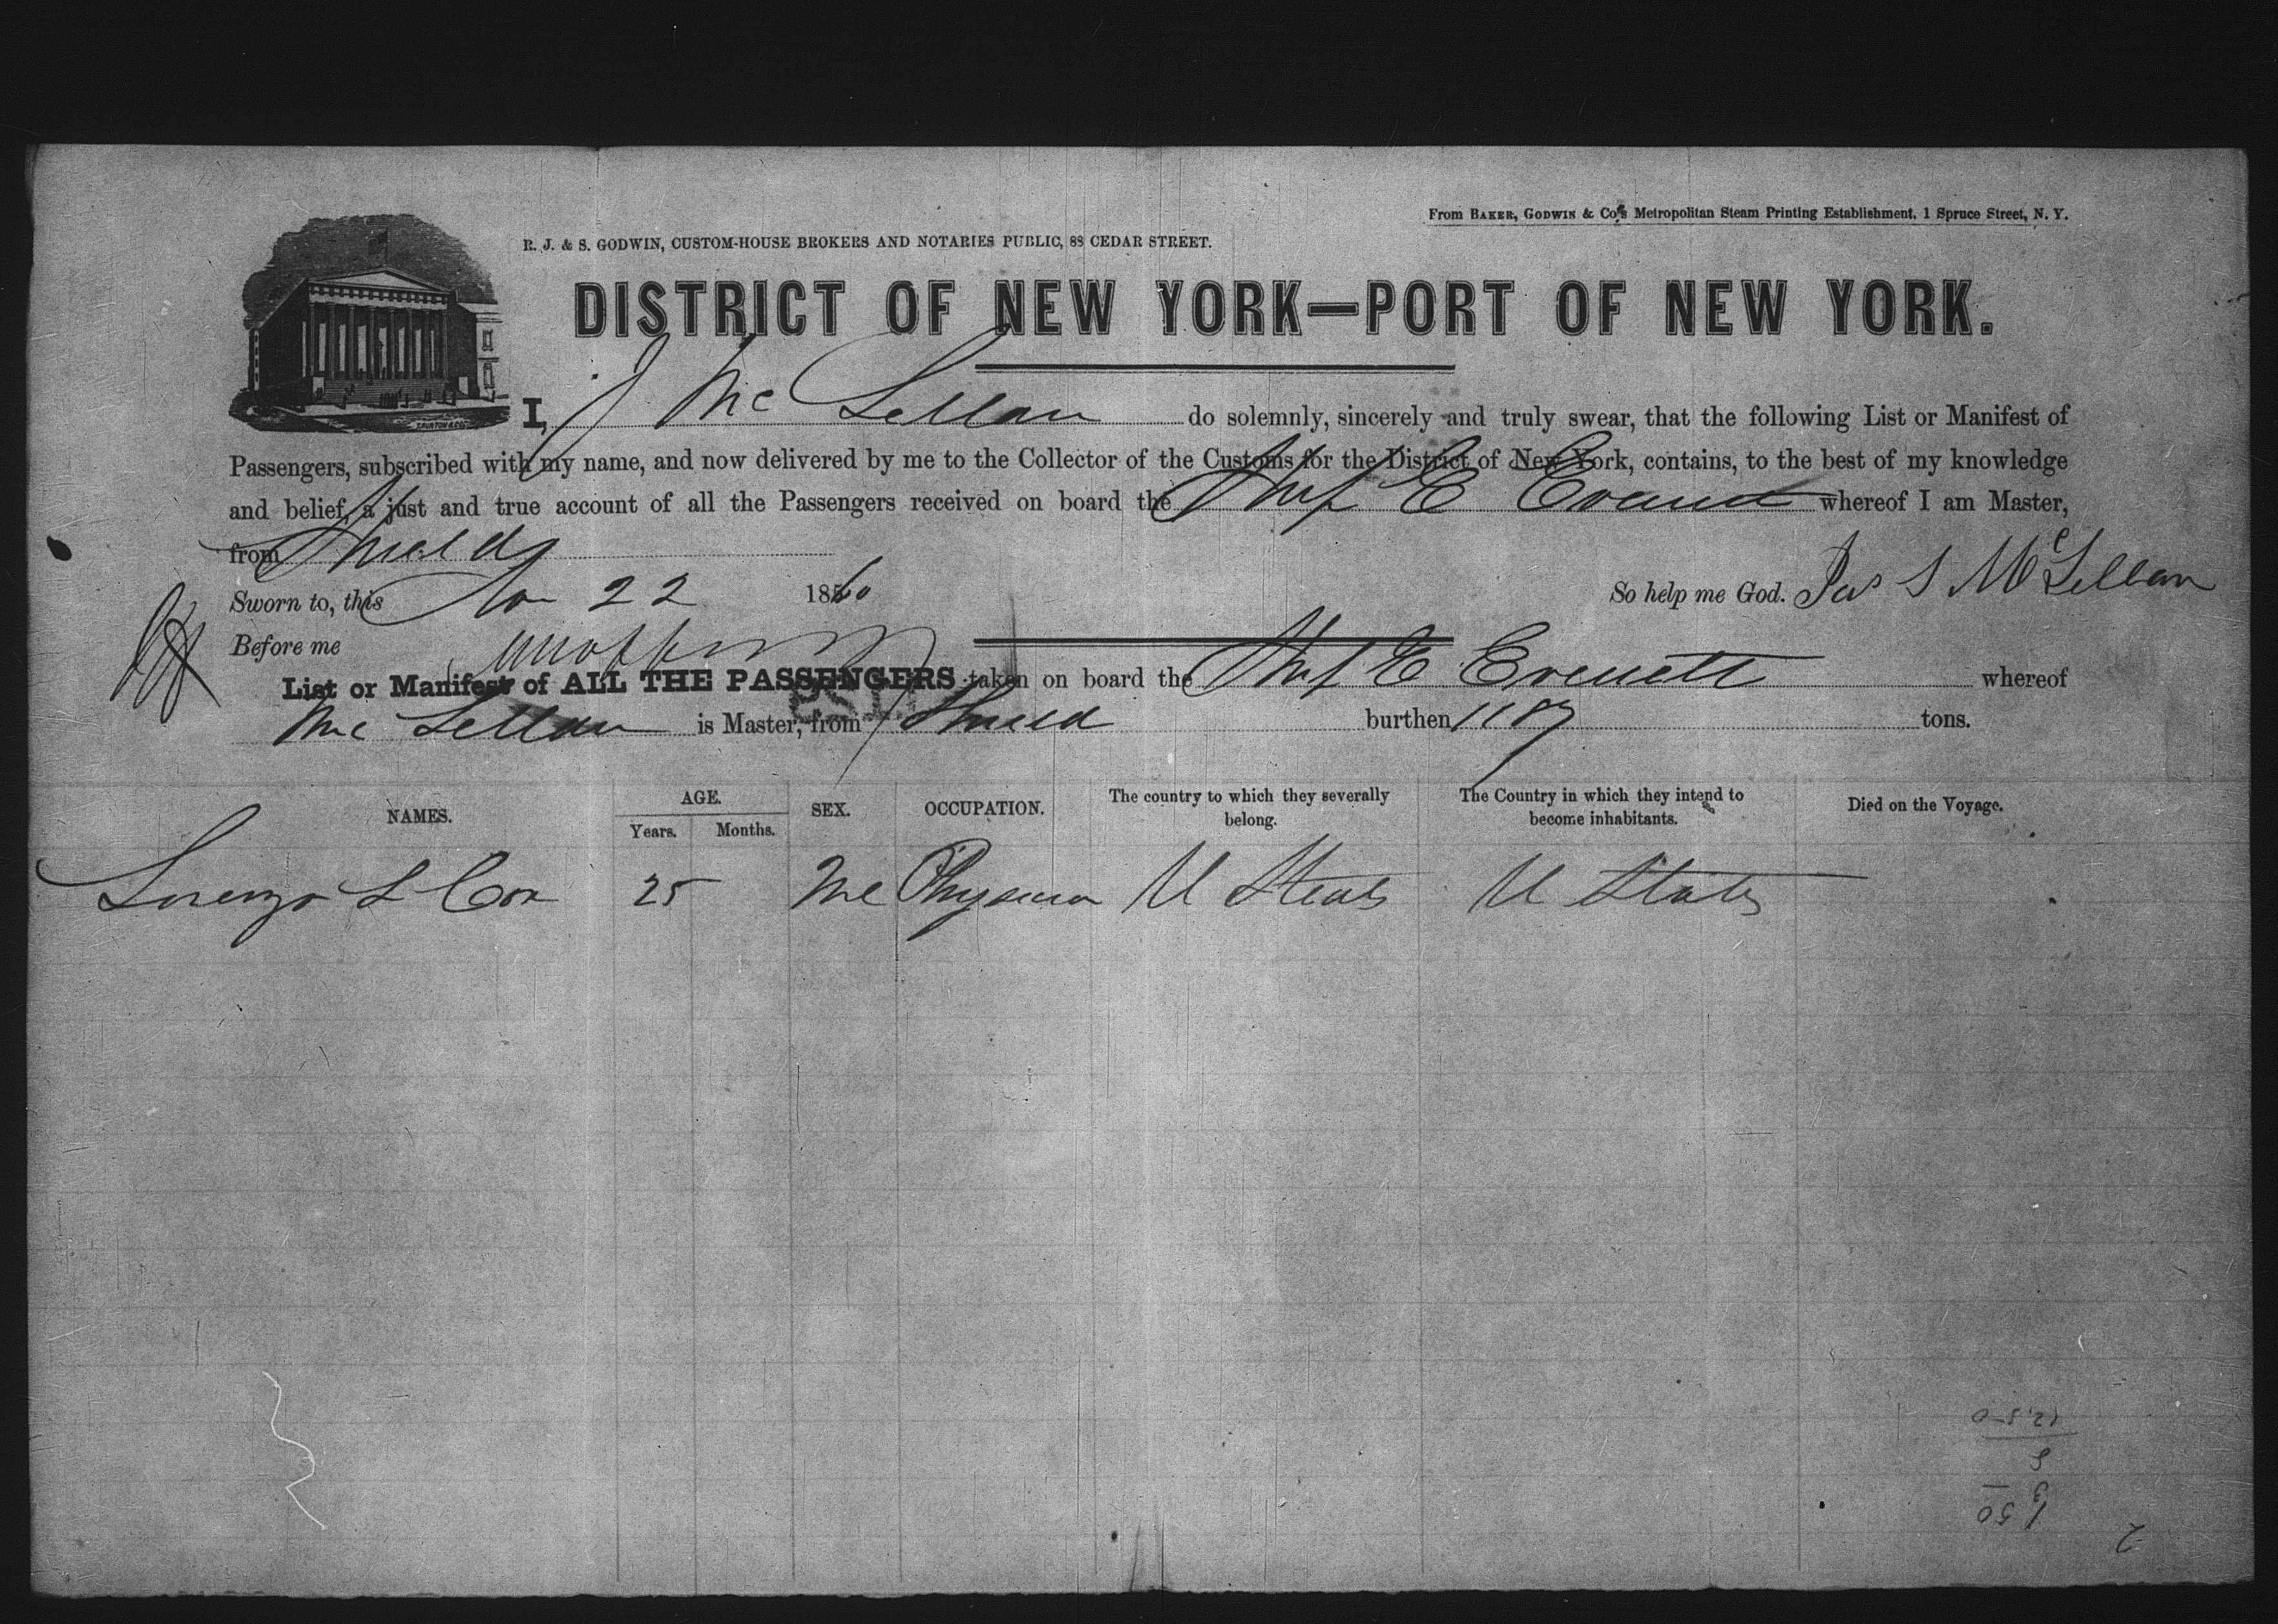 From BAKER, GODWIN & Co's Metropolitan Steam Printing Establishment, 1 Spruce Street, N. Y.
R. J. & S. GODWIN, CUSTOM-HOUSE BROKERS AND NOTARIES PUBLIC, 88 CEDAR STREET.
DISTRICT OF NEW YORK—PORT OF NEW YORK.
I, J McLellan do solemnly, sincerely and truly swear, that the following List or Manifest of
Passengers, subscribed with my name, and now delivered by me to the Collector of the Customs for the District of New York, contains, to the best of my knowledge
and belief, a just and true account of all the Passengers received on board the Ship E whereof I am Master,
from Shields
Sworn to, this 22 1860 So help me God. Jas S McLellan
Before me
List or Manifest of ALL THE PASSENGERS taken on board the Ship E Everett whereof
McLellan is Master, from Shield burthen 1187 tons.
NAMES. AGE. SEX. OCCUPATION. The country to which they severally belong. The Country in which they intend to become inhabitants. Died on the Voyage.
Years. Months.
Lorenzo L Cox 25 Me U States U States
1 50
3
9
12.50
2